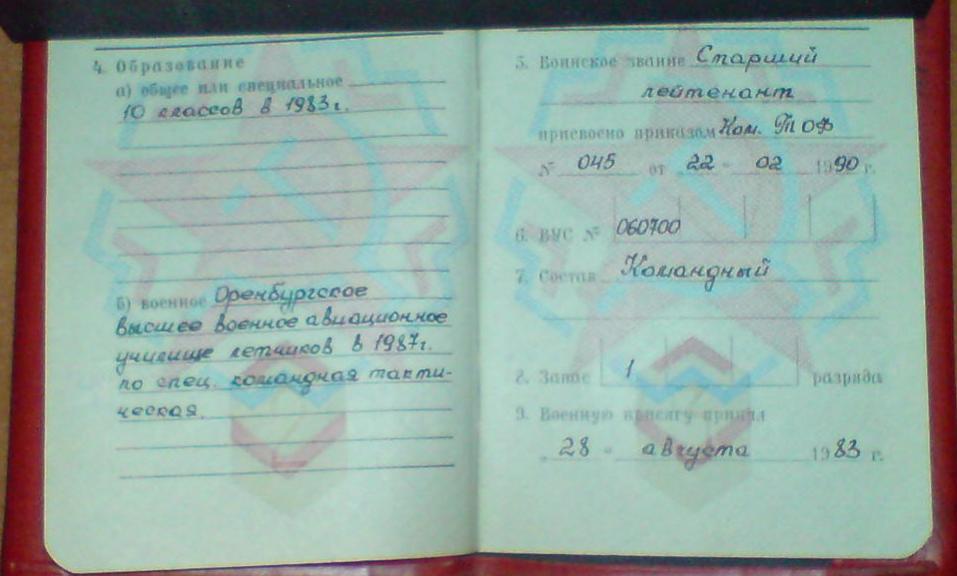 4. Образование
а) общее или специальное
10 классов в 1983г.
б) военное Оренбургское
высшее военное авиационное
училище летчиков в 1987г.
по спец. командная такти-
ческая.
5. Воинское звание Старший
лейтенант
присвоено приказом Ком. ТОФ
№ 045 от "22" 02 1990 г.
6. ВУС № 060700
7. Состав Командный
8. Запас 1 разряда
9. Военную присягу принял
"28" августа 1983 г.